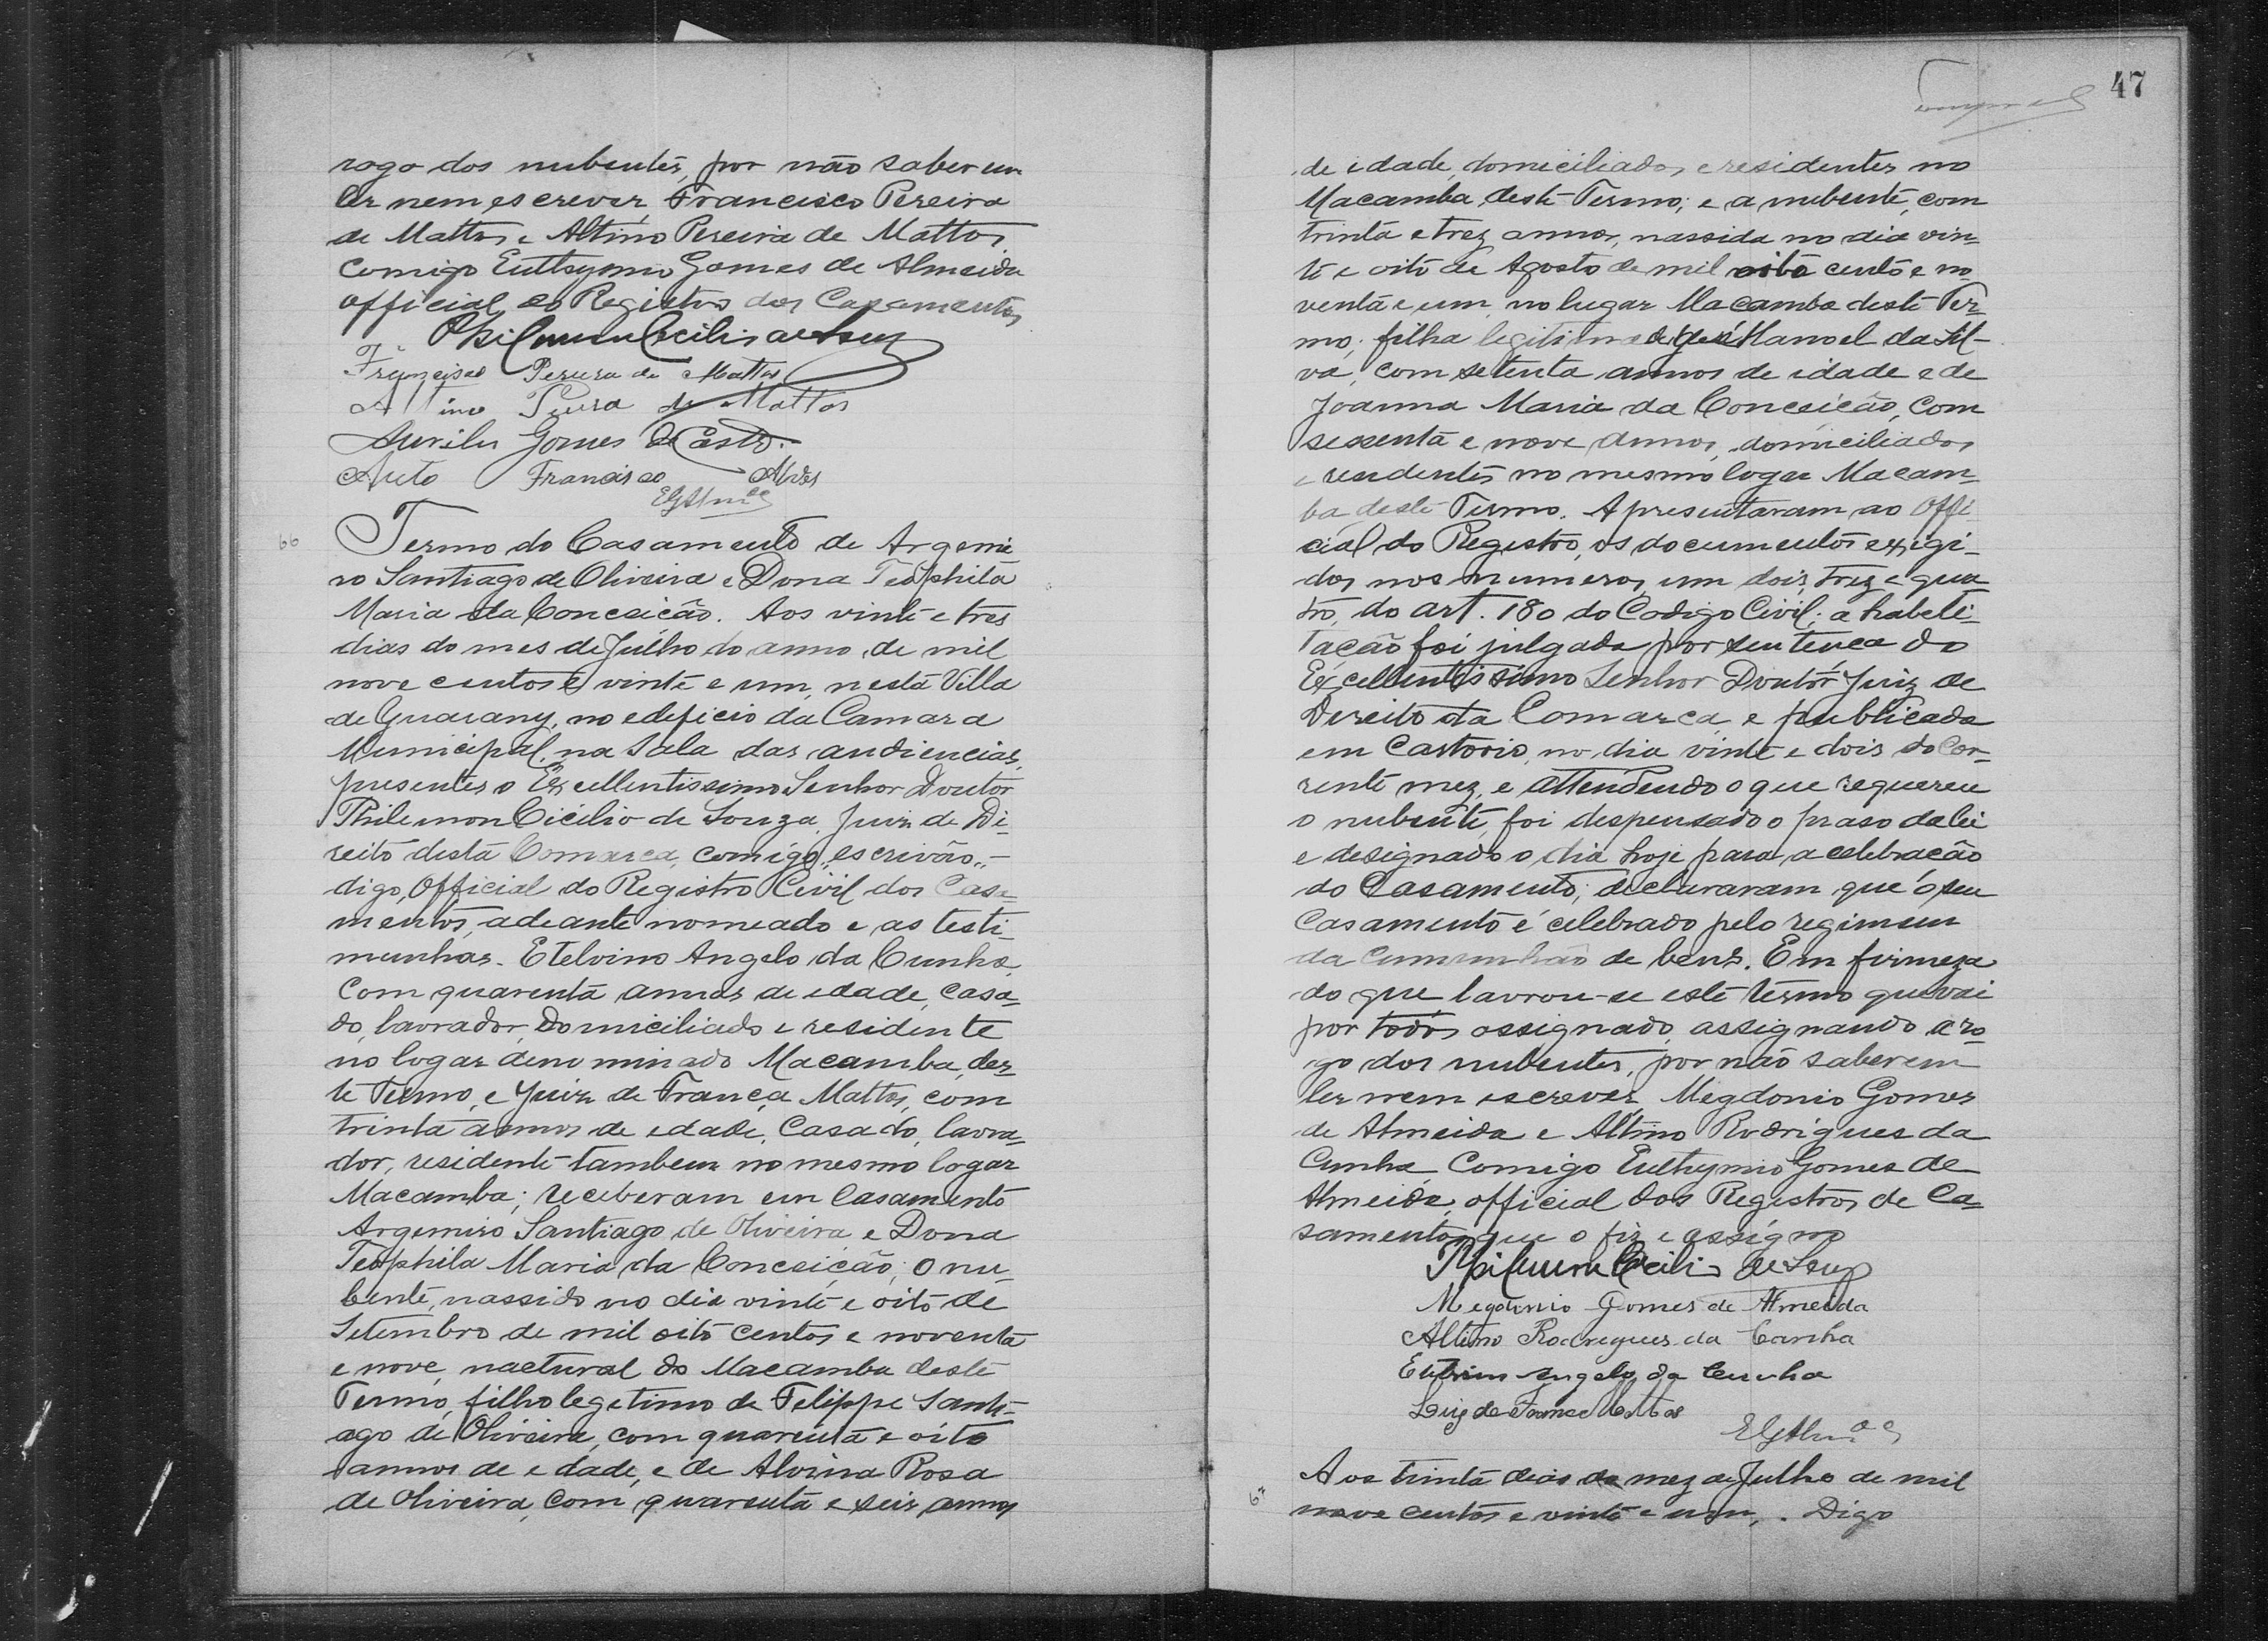 rogo dos nubentes, por não saberem
ler nem escrever, Francisco Pereira
de Mattos e Altino Pereira de Mattos
Comigo Euthymio Gomes de Almeida
official do Registros dos Casamentos
Francisco Pereira de Mattos
Altino Pereira de Mattos
Gomes de Castro.
Francisco Alves
66
Termo do Casamento de Argemi
ro Santiago de Oliveira e Dona Teóphila
Maria da Conceicão. Aos vinte e tres
dias do mes de Julho do anno, de mil
nove centos e vinte e um, nesta Villa
de Guarany, no edeficio da Camara
Municipal, na Sala das audiencias,
presentes o Excellentissimo Senhor Doutor
Philemon Cicilio de Souza, Juiz de Di-
reito desta Comarca, comigo, escrivão,-
digo, Official do Registro Civil dos Casa-
mentos, adeante nomeado e as testi-
munhas. Etelvino Angelo da Cunha,
Com quarenta annos de edade, casa-
do, lavrador, Domiciliado e residente
no logar denominado Macamba, des-
te Termo, e Luiz de França Mattos, com
trinta annos de edade, Casado, lavra-
dor, residente tambem no mesmo logar
Macamba; receberam em Casamento
Argemiro Santiago de Oliveira e Dona
Teóphila Maria da Conceição; O nu-
bente, nassido no dia vinte e oito de
Setembro de mil oito centos e noventa
e nove, nactural do Macamba deste
Termo, filho legetimo de Felippe Santi-
ago de Oliveira, com quarenta e oito
annos de edade, e de Alvina Rosa
de Oliveira, com, quarenta e seis annos
47
de idade, domiciliados e residentes no
Macamba, deste Termo; e a nubente, com
trinta e trez annos, nassida no dia vin-
te e oito de Agosto de mil oito cento e no
venta e um, no lugar Macamba deste Ter-
mo; filha legitima de José Manoel da Sil-
va, com setenta annos de idade e de
Joanna Maria da Conceicão, com
sessenta e nove annos, domiciliados
e residentes no mesmo logar Macam-
ba deste Termo. Apresentaram ao Offi-
cial do Registro, os documentos exigi-
dos nos numeros, um, dois, trez e qua-
tro, do art. 180 do Codigo Civil; a habeli-
tacão foi julgada por sentença do
Excellentissimo Senhor Doutor Juiz de
Direito da Comarca, e publicada
em Cartorio, no dia vinte e dois do Cor-
rente mez, e attendendo o que requereu
o nubente, foi despensado o praso da lei
e designado o dia hoje para a celebracão
do Casamento; declararam que o seu
Casamento é celebrado pelo regimem
da Cumunhão de bens. Em firmeza
do que lavrou-se este termo que vai
por todos assignado, assignando a ro-
go dos nubentes, por não saberem
ler nem escrever Megdonio Gomes
de Almeida e Altino Rodrigues da
Cunha Comigo Euthymio Gomes de
Almeida, official dos Registros de Ca-
samentos que o fiz e assigno
Megdonio Gomes de Almeida
Altino Rodrigues da Cunha
Etelvino Angelo da Cunha
Luiz de França Mattos
67
Aos trinta dias do mez de Julho de mil
nove centos e vinte e um, . Digo